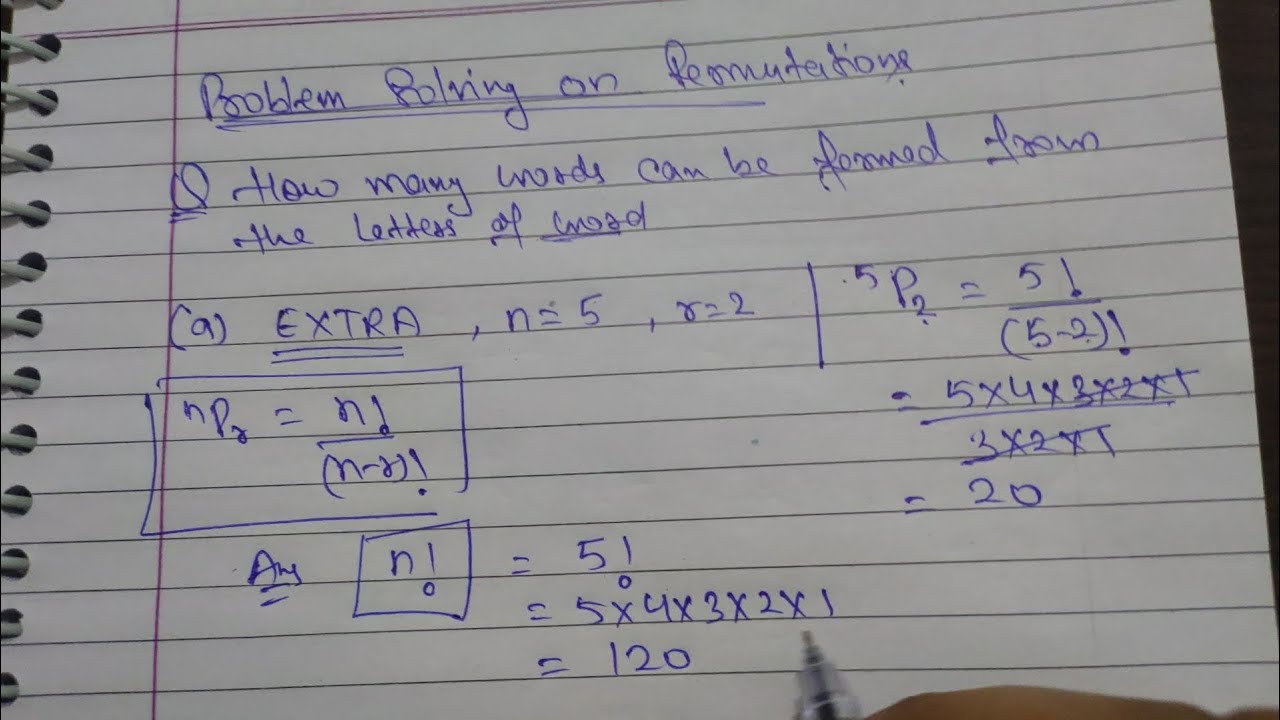 Problem Solving on Permutations
Q How many words can be formed from
the letters of word
(a) EXTRA , n = 5 , r = 2
nPr = n!
(n-r)!
5P2 = 5!
(5-2)!
= 5×4×3×2×1
3×2×1
= 20
Ans n! = 5!
= 5×4×3×2×1
= 120